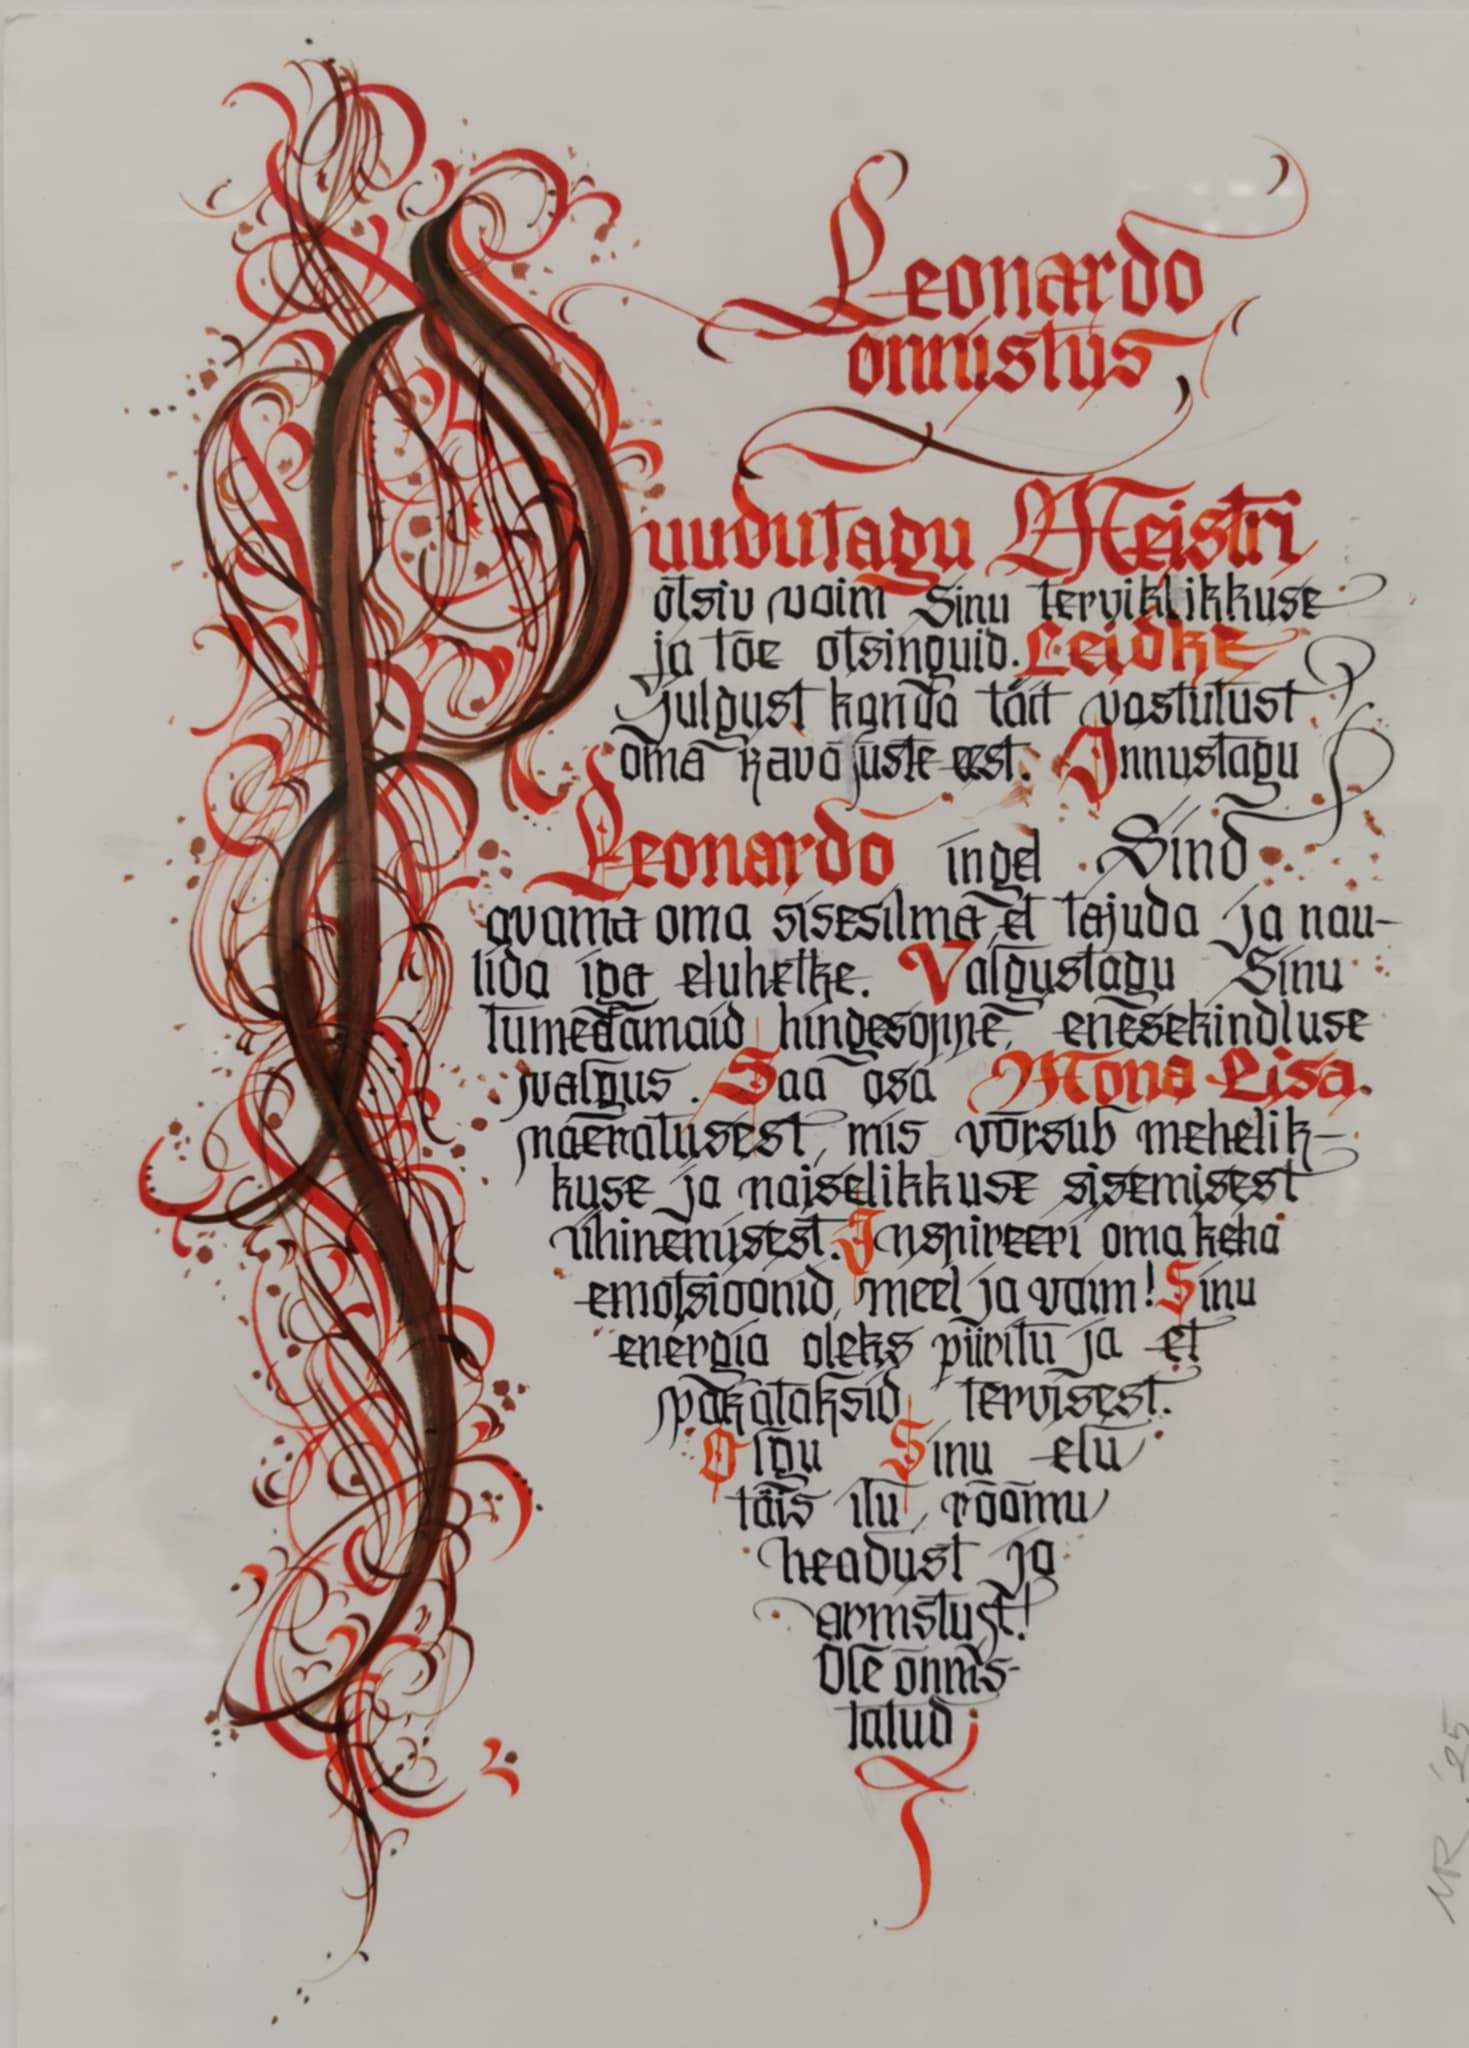 Leonardo
õnnistus
Puudutagu Meistri
otsiv vaim Sinu terviklikkuse
ja tõe otsinguid. Leidke
julgust kanda täit vastutust
oma kavatsuste eest. Õnnistagu
Leonardo ingel Sind
avama oma sisesilma, et tajuda ja nau-
tida iga eluhetke. Valgustagu Sinu
tumedamaid hingesoppe enesekindluse
valgus. Saa osa Mona Lisa.
naeratusest, mis võrsub mehelik-
kuse ja naiselikkuse sisemisest
ühinemisest. Inspireeri oma keha
emotsioonid, meel ja vaim! Sinu
energia oleks piiritu ja et
pakataksid tervisest.
Olgu Sinu elu
täis ilu, rõõmu
headust ja
armstust!
Ole õnnis-
tatud
MR '25